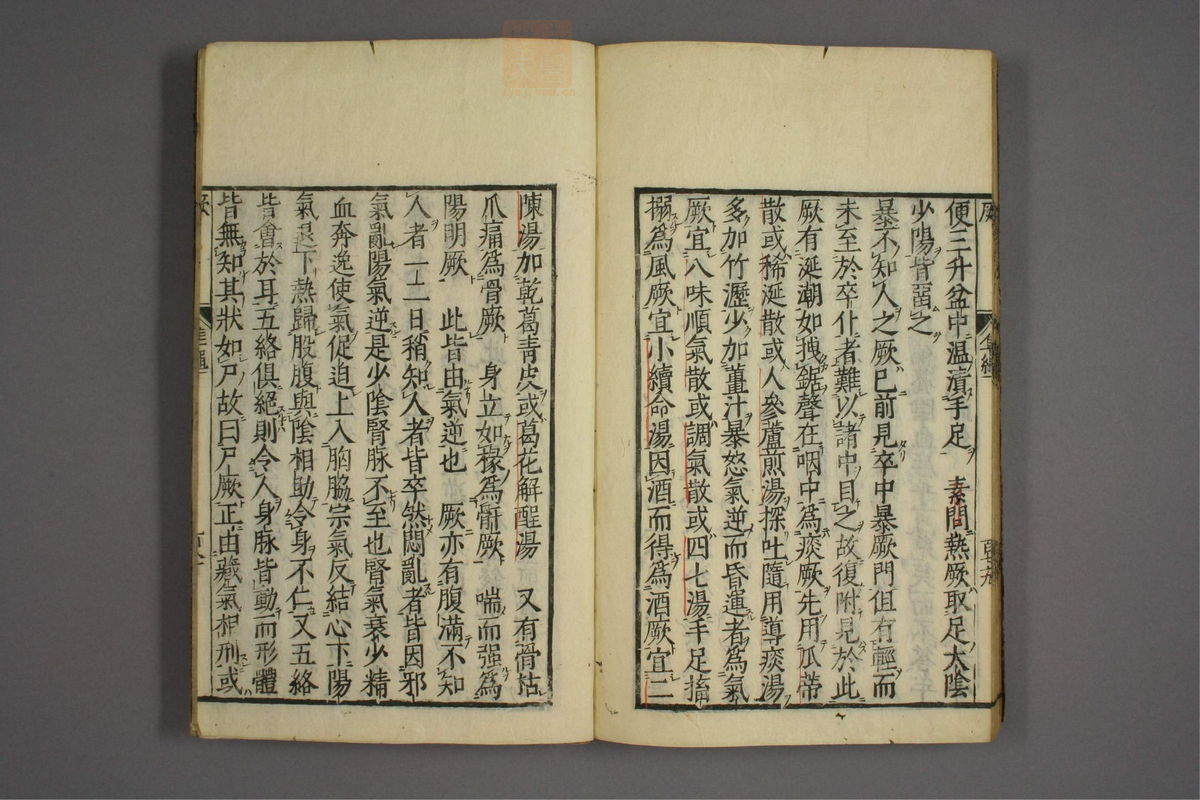 便三升盆中温漬手足　素問熱厥取足太陰
少陽皆留之
暴不知人之厥已前見卒中暴厥門但有輕而
未至於卒仆者難以諸中目之故復附見於此
厥有涎潮如拽鋸聲在咽中為痰厥先用瓜蒂
散或稀涎散或人參蘆煎湯探吐隨用導痰湯
多加竹瀝少加薑汁暴怒氣逆而昏運者為氣
厥宜八味順氣散或調氣散或四七湯手足搐
搦為風厥宜小續命湯因酒而得為酒厥宜二
陳湯加乾葛青皮或葛花解酲湯　又有骨枯
爪痛為骨厥　身立如椽為骭厥　喘而强為
陽明厥　此皆由氣逆也　厥亦有腹滿不知
人者一二日稍知人者皆卒然悶亂者皆因邪
氣亂陽氣逆是少陰腎脉不至也腎氣衰少精
血奔逸使氣促迫上入胸脇宗氣反結心下陽
氣退下熱歸股腹與陰相助令身不仁又五絡
皆會於耳五絡俱絕則令人身脉皆動而形體
皆無知其狀如尸故曰尸厥正由藏氣相刑或